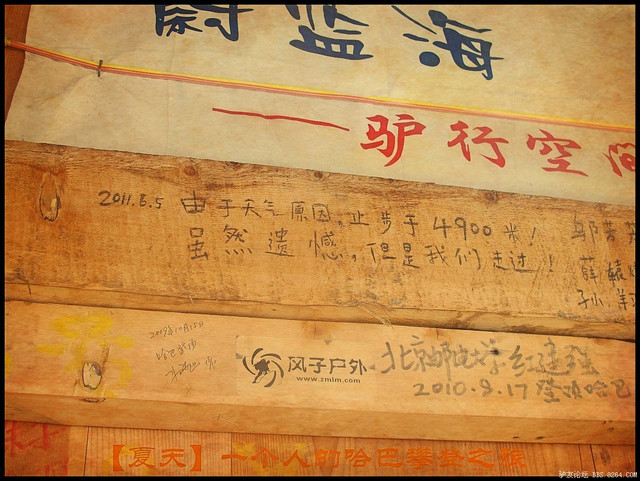 蔚蓝海
——驴行空间
2011.6.5 由于天气原因,止步于4900米!
虽然遗憾,但是我们走过!
薛
孙
2009年10月15日
哈巴
风子户外
www.zmlm.com
北京邮电大学
2010.9.17登顶哈巴
【夏天】一个人的哈巴攀登之旅
驴友论坛 BBS.8264.COM